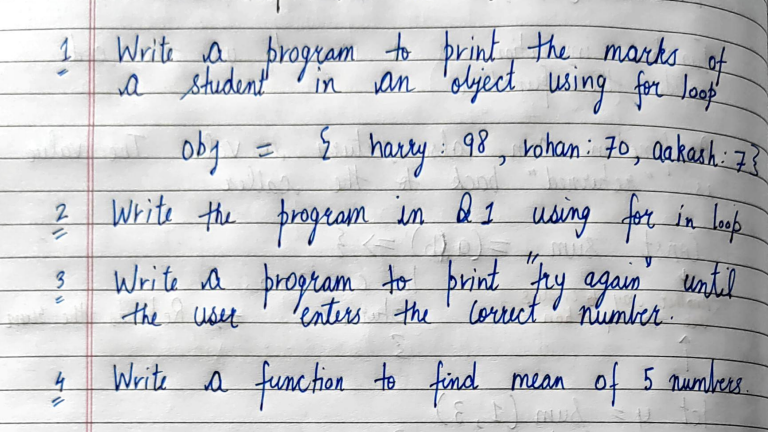 1 Write a program to print the marks of
a student in an object using for loop
obj = { harry : 98 , rohan : 70, aakash : 7}
2 Write the program in Q1 using for in loop
3 Write a program to print "try again" until
the user enters the correct number.
4 Write a function to find mean of 5 numbers.